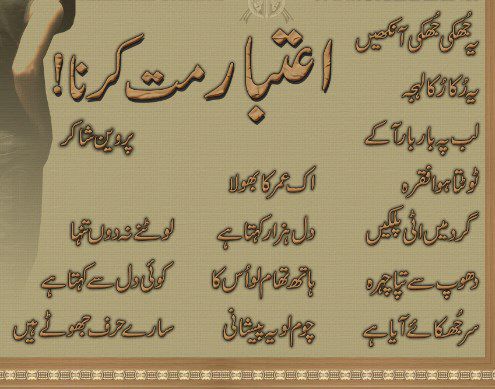 اعتبار مت کرنا!
پروین شاکر
یہ جُھکی جُھکی آنکھیں
یہ رُکا رُکا لہجہ
لب پہ بار بار آ کے
ٹوٹتا ہوا فقرہ
گرد میں اٹی پلکیں
دھوپ سے تپا چہرہ
سر جُھکائے آیا ہے
اک عمر کا بھولا
دل ہزار کہتا ہے
ہاتھ تھام لو اُس کا
چوم لو یہ پیشانی
لوٹنے نہ دوں تنہا
کوئی دل سے کہتا ہے
سارے حرف جھوٹے ہیں